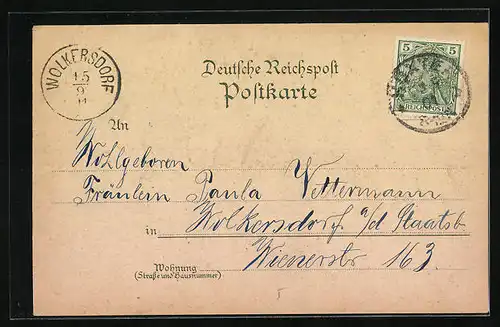 WOLKERSDORF
15
9
Deutsche Reichspost
Postkarte
5 5
REICHSPOST
An
Wohlgeboren
Fräulein Paula Wettermann
in Wolkersdorf a/d Staatsb
Wienerstr 163
Wohnung
(Straße und Hausnummer)